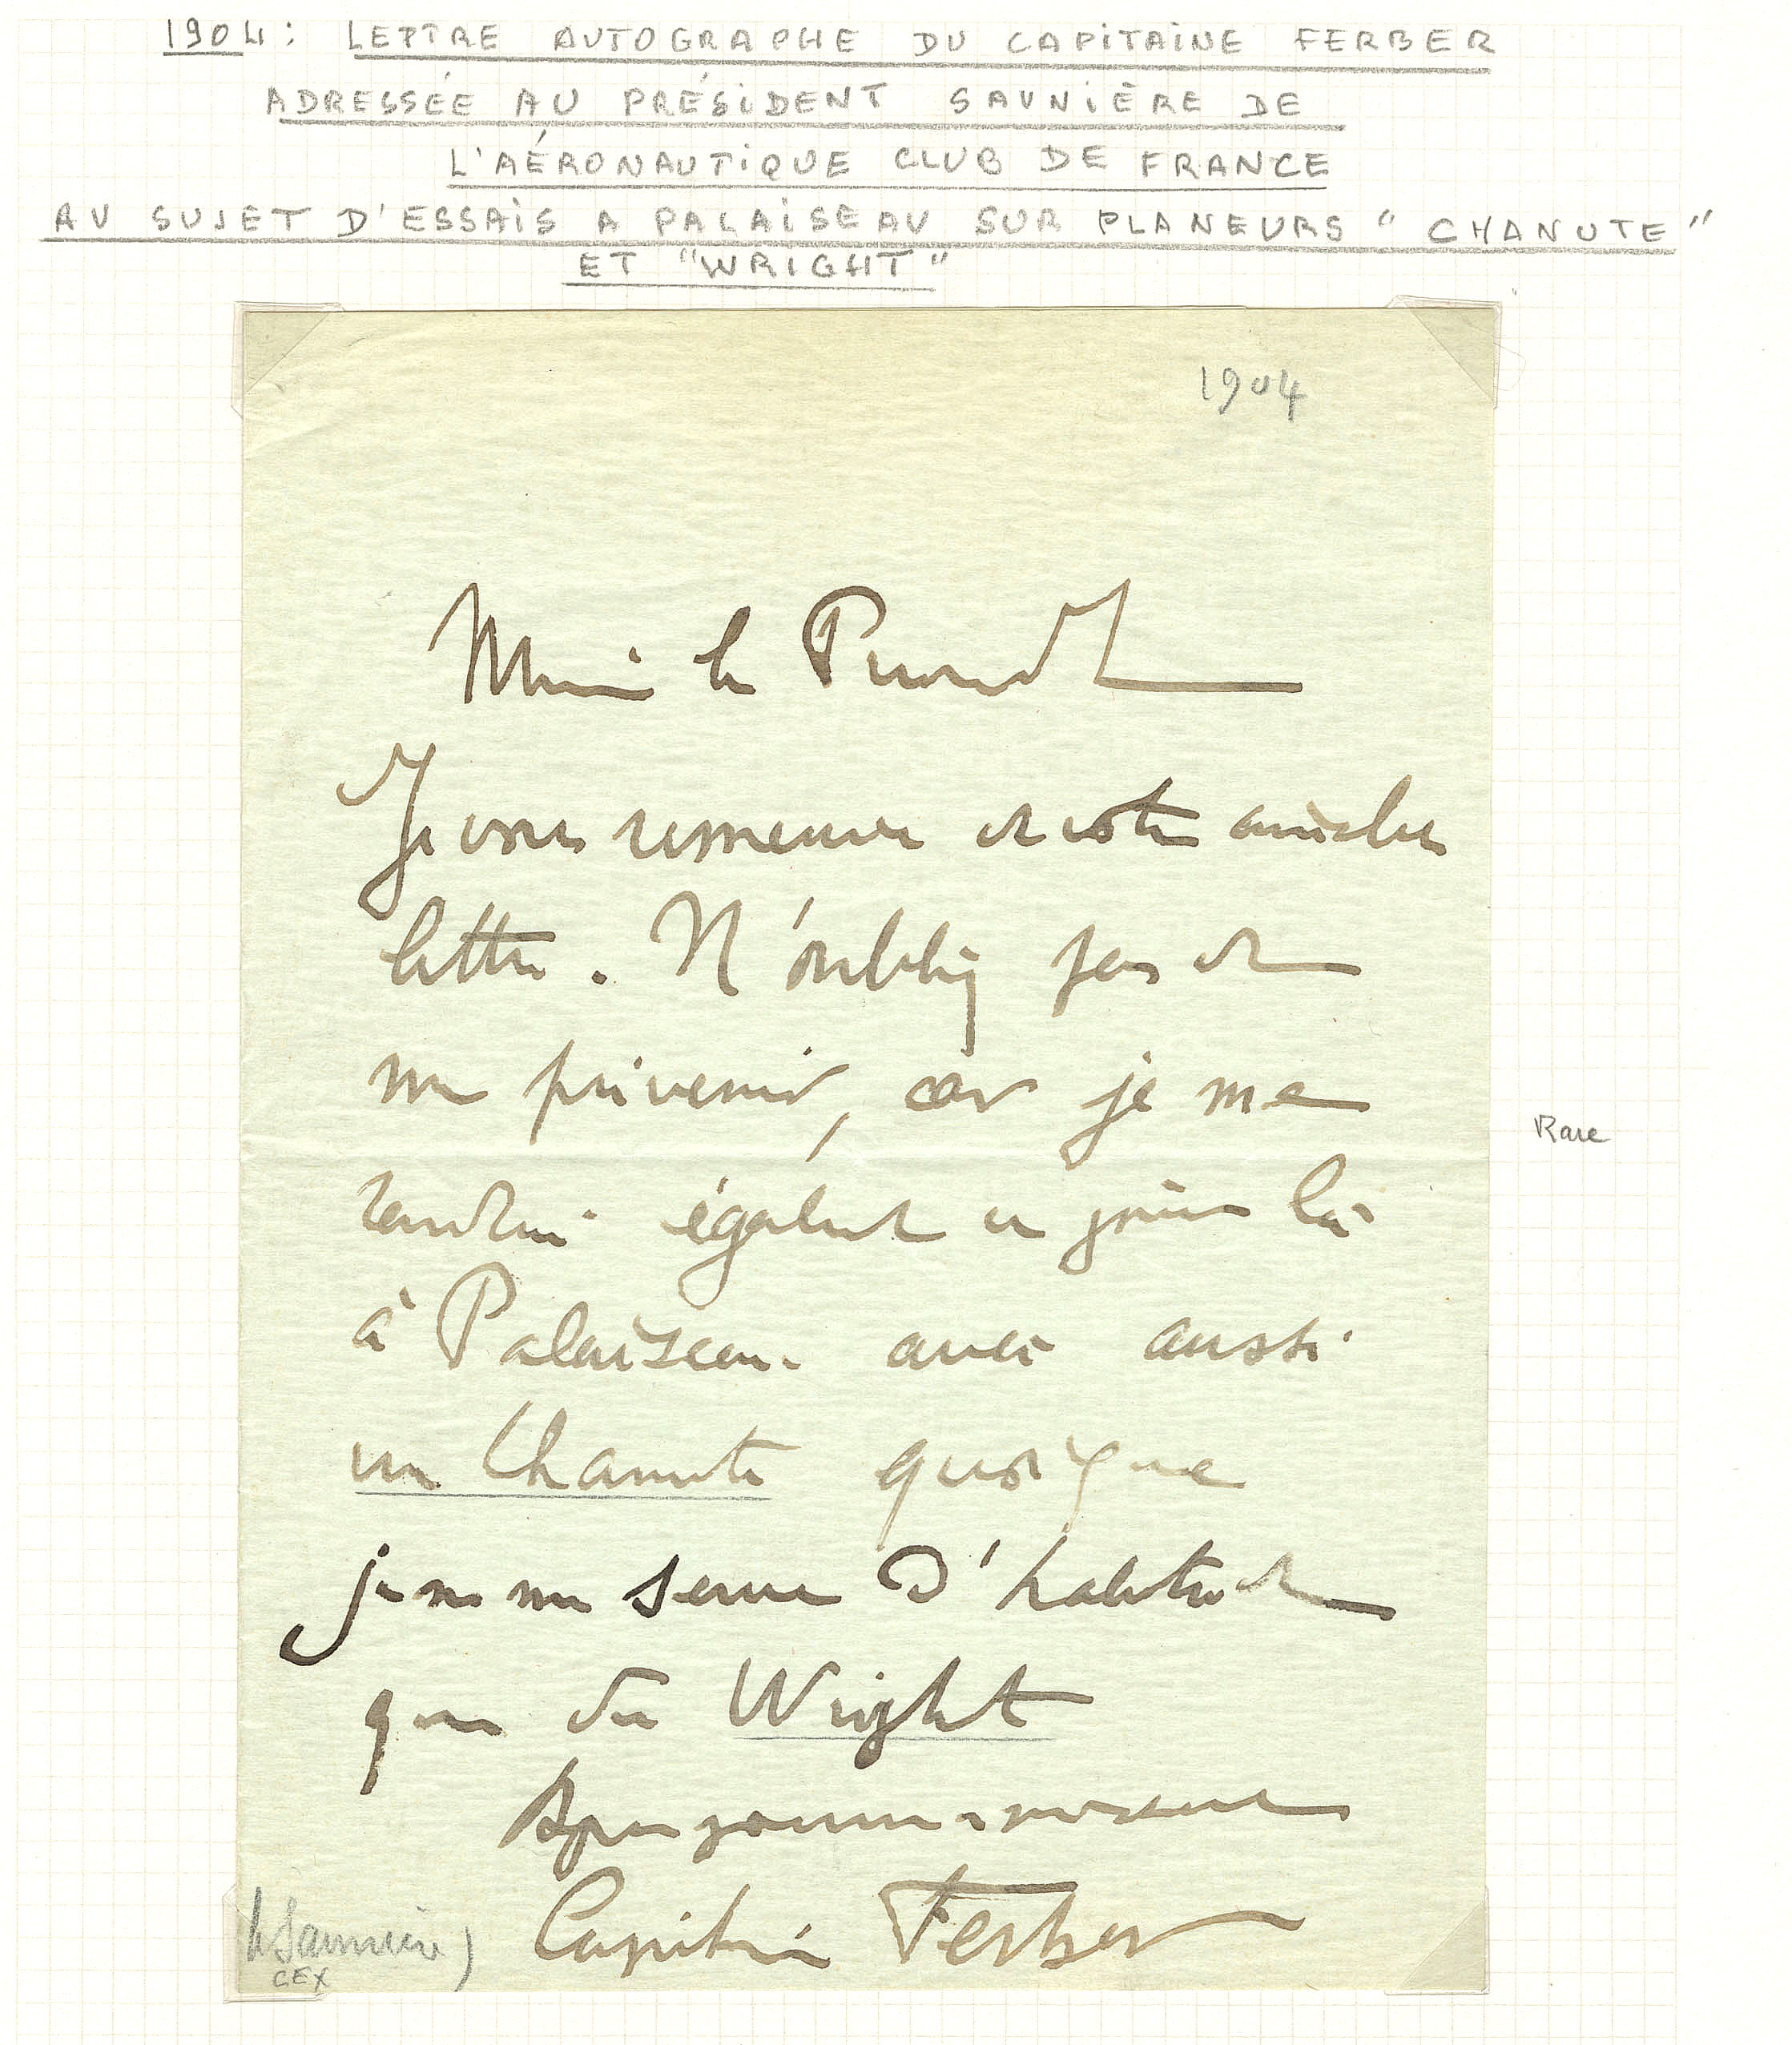 1904 : LETTRE AUTOGRAPHE DU CAPITAINE FERBER
ADRESSÉE AU PRÉSIDENT SAUNIÈRE DE
L'AÉRONAUTIQUE CLUB DE FRANCE
AU SUJET D'ESSAIS A PALAISEAU SUR PLANEURS "CHANUTE"
ET "WRIGHT"
1904
le Président
Je vous remercie de votre aimable
lettre. N'oubliez pas de
me prévenir, car je me
rendrai également ce jour là
à Palaiseau avec aussi
un Chanute quoique
je ne me serve d'habitude
que du Wright
Rare
Capitaine Ferber
Saunière)
CEX